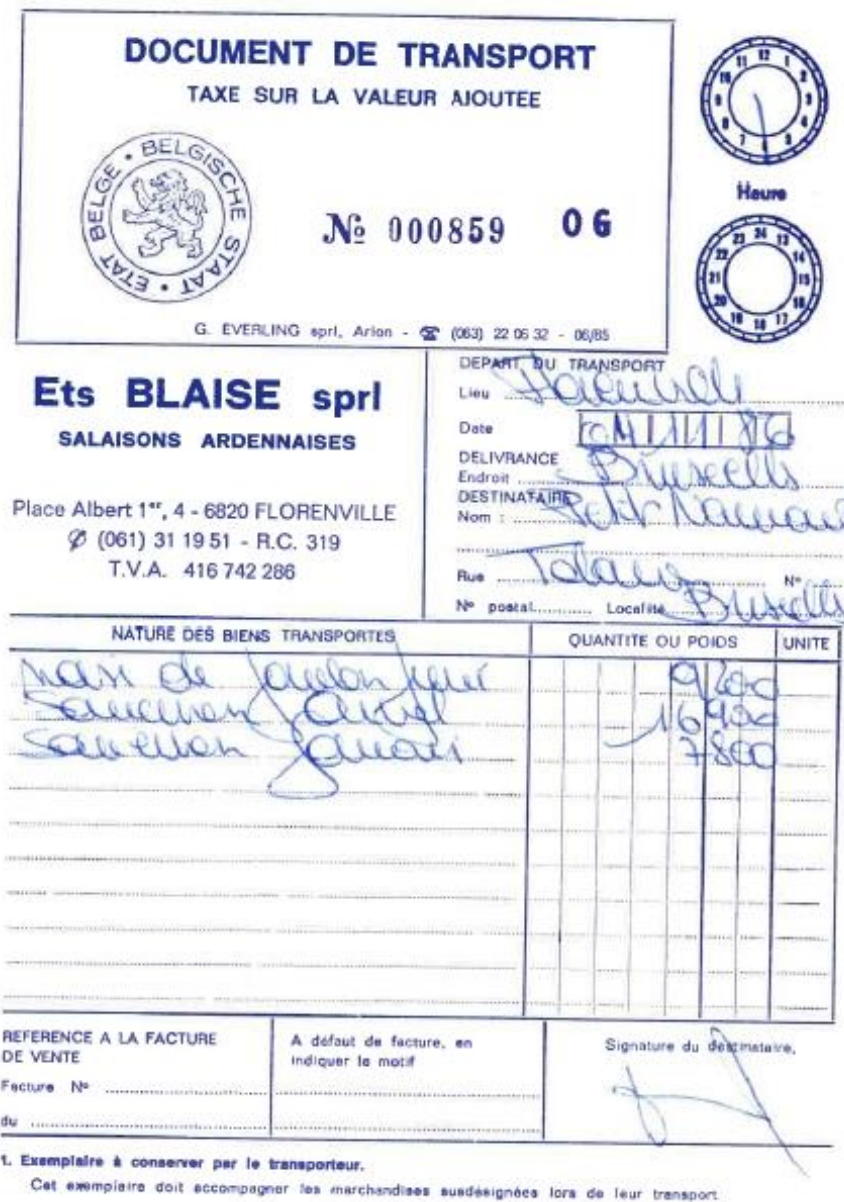 DOCUMENT DE TRANSPORT
TAXE SUR LA VALEUR AJOUTEE
ETAT BELGE • BELGISCHE STAAT •
№ 000859 06
G. EVERLING sprl, Arlon - ☎ (063) 22 06 32 - 06/85
11 12 1 2 3 4 5 6 7 8 9 10
Heure
23 24 13 14 15 16 17 18 19 20 21 22
Ets BLAISE sprl
SALAISONS ARDENNAISES
Place Albert 1er, 4 - 6820 FLORENVILLE
(061) 31 19 51 - R.C. 319
T.V.A. 416 742 286
DEPART DU TRANSPORT
Lieu
Date 04 11 86
DELIVRANCE
Endroit Bruxelles
DESTINATAIRE
Nom : Petit
Rue N°
N° postal Localité Bruxelles
NATURE DES BIENS TRANSPORTES QUANTITE OU POIDS UNITE
de jambon
Saucisson
16
Saucisson 7800
REFERENCE A LA FACTURE
DE VENTE
Facture N°
du
A défaut de facture, en
indiquer le motif
Signature du destinataire,
1. Exemplaire à conserver par le transporteur.
Cet exemplaire doit accompagner les marchandises susdésignées lors de leur transport